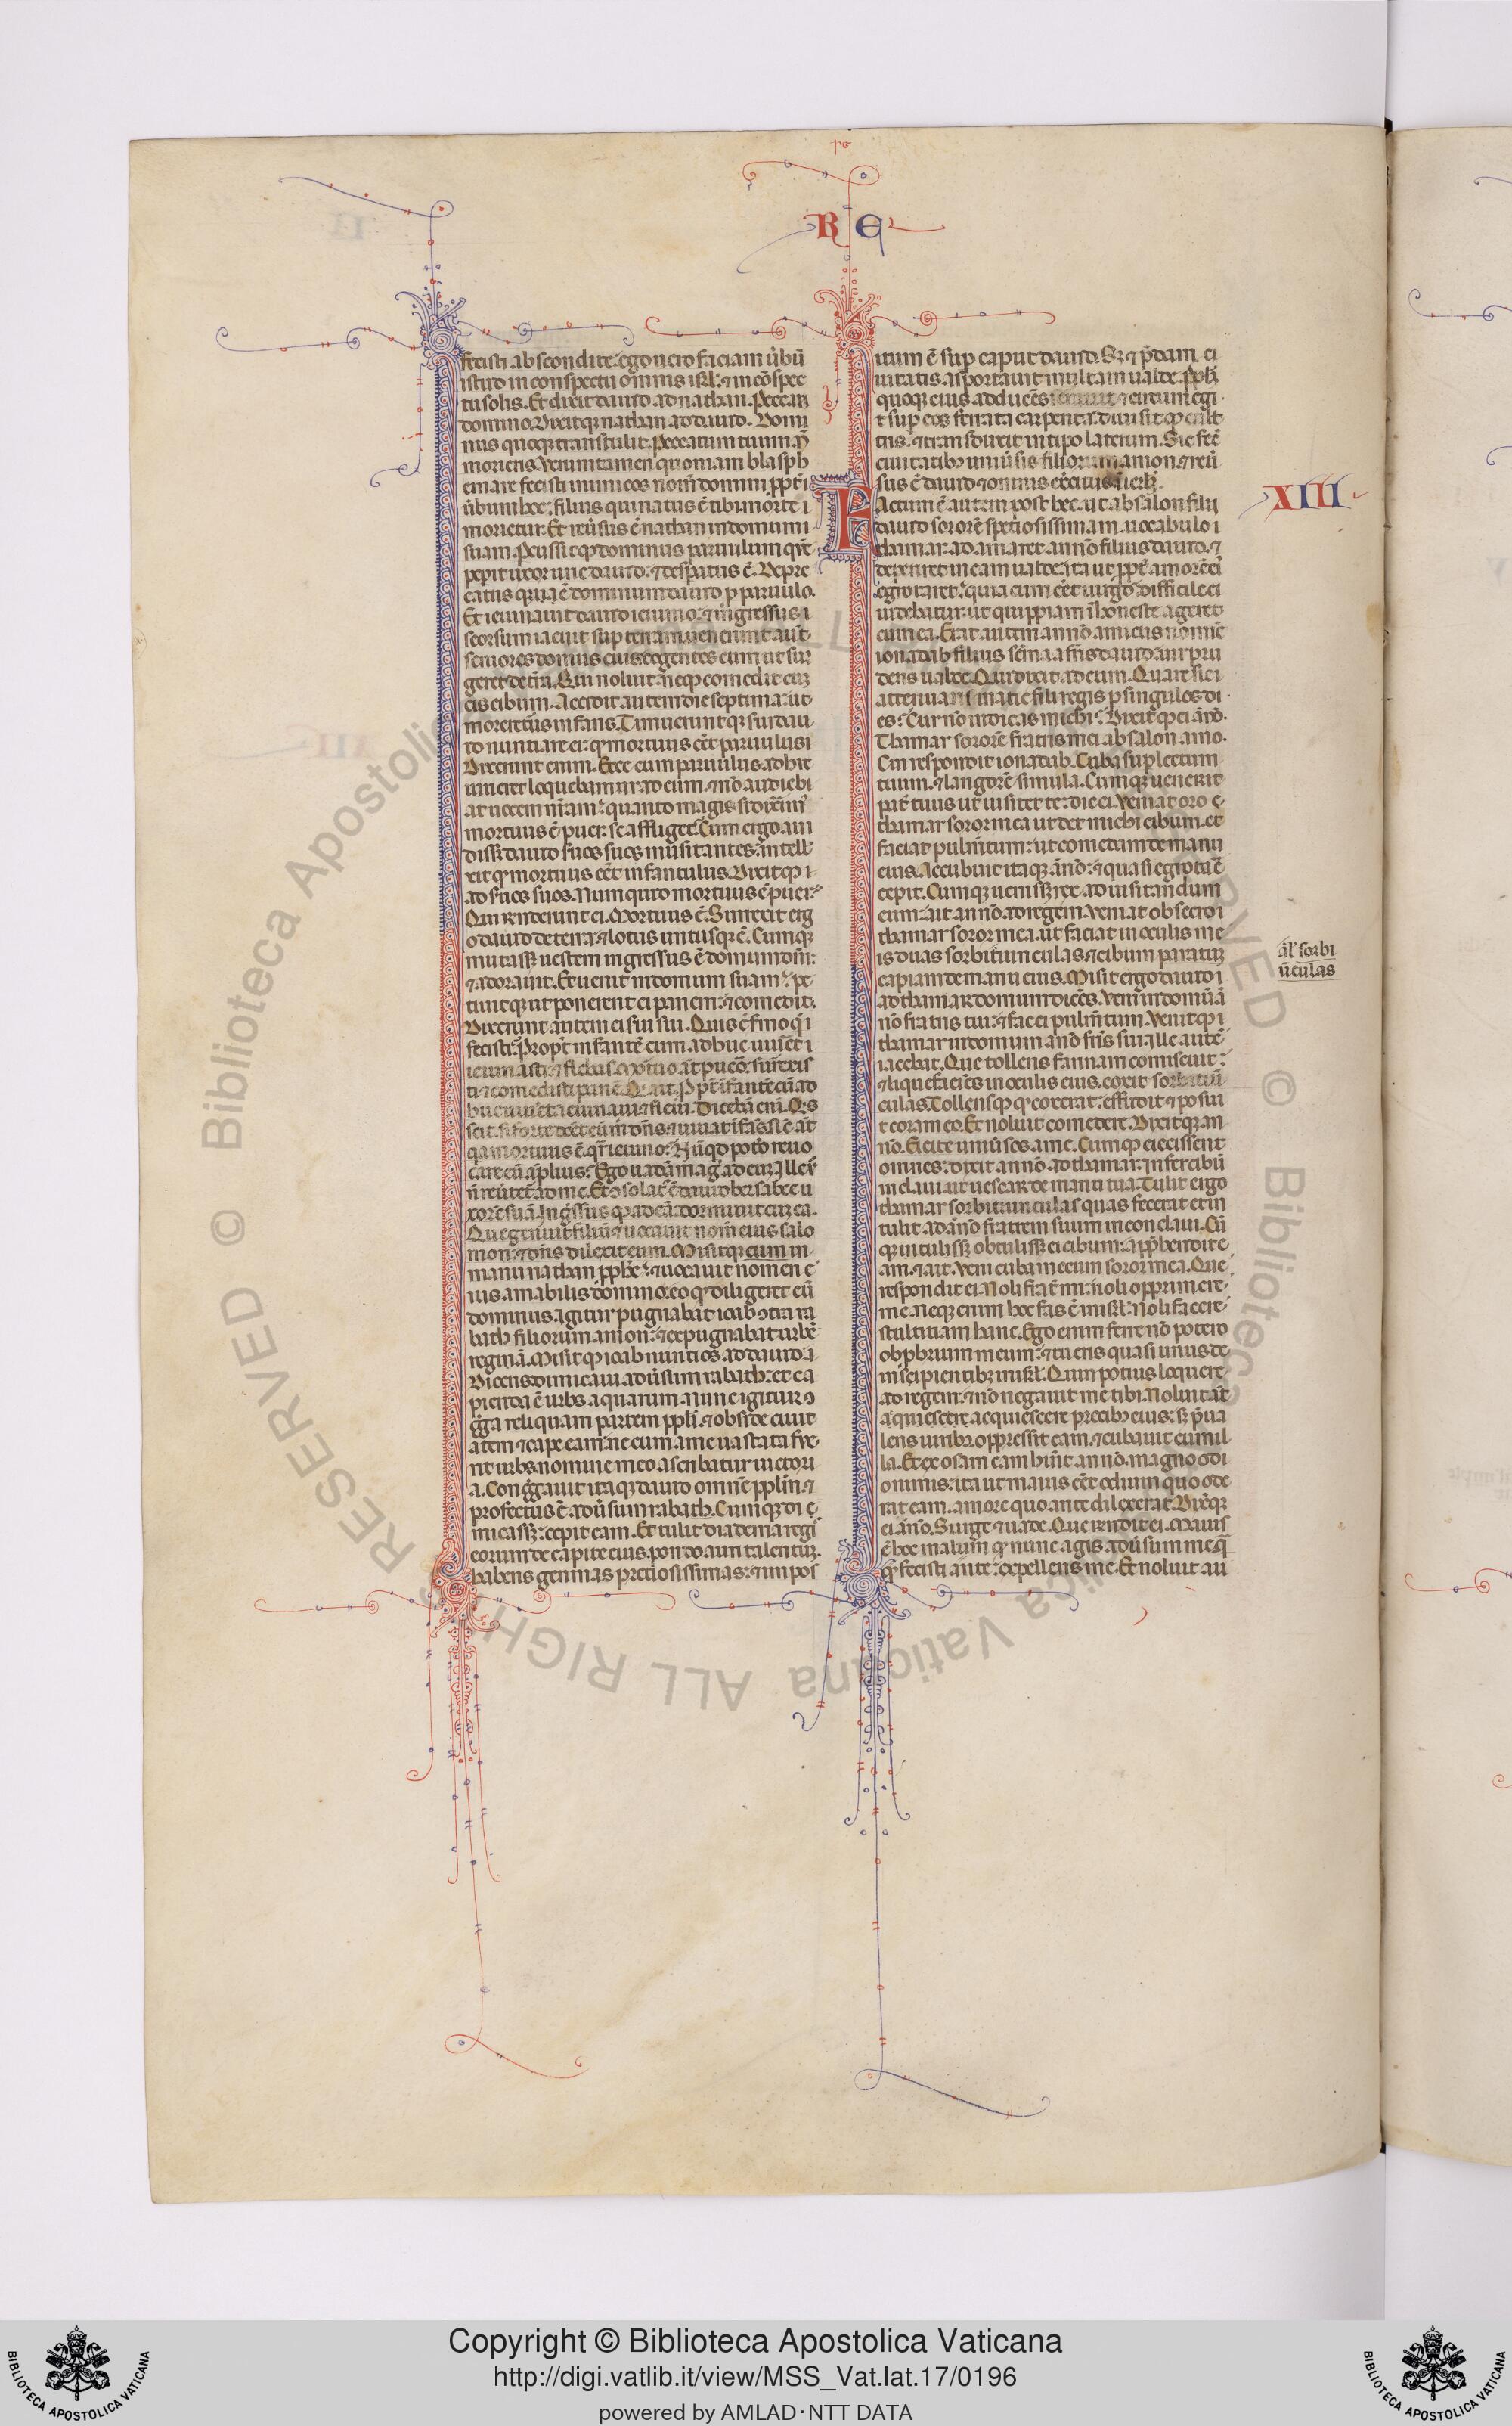 R E
fecisti abscondite: ego uero faciam ủbū
istud in conspectu omnis isrl: ⁊ in cōspec
tu solis. Et dixit dauid ad nathan. Peccaui
domino. Dixitqꝫ nathan ad dauid. Domi
nus quoqꝫ transtulit peccatum tuum. nō
morieris. Verumtamen quoniam blasph
emare fecisti inimicos nom̄ domini ꝓpt̄
ủbum hoc: filius qui natus ē tibi morte
morietur. Et reủsus ē nathan in domum
suam. Percussitqꝫ dominus paruulum quē
peperit uxor urie dauid: ⁊ desperatus ē. Depre
catusqꝫ ē dominum dauid ꝓ paruulo.
Et ieiunauit dauid ieiunio: ⁊ ingressus
seorsum iacuit sup terram. uenerunt aūt
seniores domus eius cogentes eum ut sur
geret de t̄ra. Qui noluit neqꝫ comedit cū
eis cibum. Accidit autem die septima: ut
moreretur infans. Timueruntqꝫ sui dau
id nuntiare ei: qͥ mortuus eēt paruulus
Dixerunt enim. Ecce cum paruulus adhuc
uiueret loquebamur ad eum. ⁊ nō audieb
at uocem nr̄am: quanto magis si dixerim
mortuus ē puer: se affliget. Cum ergo aui
disset dauid suos suos musitantes: intell
exit qͥ mortuus eēt infantulus. Dixitqꝫ
ad suos suos. Num quid mortuus ē puer:
Qui renderunt ei. Mortuus ē. Surrexit erg
o dauid de terra: ⁊ lotus untusqꝫ ē. Cumqꝫ
mutasset uestem ingressus ē domum dn̄i:
⁊ adorauit. Et uenit in domum suam: pe
tiuitqꝫ ut ponerent ei panem: ⁊ comedit.
Dixerunt autem ei sui sui. Quis ē sermo quē
fecisti. Propt̄ infantē cum adhuc uiuēt
ieiunasti: ⁊ flebas. Mortuo aūt puero: surrexis
ti ⁊ comedisti panē. Qui ait. Propt̄ infantē cū ad
huc uiuēt ieiunaui ⁊ fleui. Dicebā enī. Qͥs
scit si forte donet eum dn̄s: ⁊ uiuat infās. Nūc aūt
qͥa mortuus ē. qͣre ieiuno: Nūqͥd poto reuo
care eū āplius: Ego uadā magͥ ad eū: ille ủ
nō reủtet̄ ad me. Et ɔsolat̄ ē dauid bersabee u
xorē suā. Ingssusqꝫ ad eā: dormiuit cū ea.
Que genuit filiū: ⁊ uocauit nom̄ eius salo
mon: ⁊ dn̄s dilexit eum. Misitqꝫ eum in
manu nathan ꝓphe: ⁊ uocauit nomen e
ius amabilis domino: eo qͥ diligeret eū
dominus. Agitur pugnabat ioab ɔtra ra
bath filiorum amon: ⁊ expugnabat urbē
regiā. Misitqꝫ ioab nuntios ad dauid
Dicens. dimicaui aduersum rabath: et ca
pienda ē urbs aquarum. Nunc igitur ɔ
gͣga reliquam partem ppli: ⁊ obside ciuit
atem ⁊ cape eam: ne cum a me uastata fue
rit urbs nomine meo ascribatur uictori
a. Congͣgauit itaqꝫ dauid omnē pplm: ⁊
profectus ē aduersum rabath. Cumqꝫ di
micasset: cepit eam. Et tulit diadema regis
eorum de capite eius. pondo auri talentū.
habens gemmas preciosissimas: ⁊ inpos
itum ē sup caput dauid. Sꝫ ⁊ p̄dam ci
uitatis asportauit multam ualde. Pplm
quoqꝫ eius adducēs serrauit ⁊ circum egi
t sup eos ferrata carpenta: diuisitqꝫ cult
ris. ⁊ transduxit in tipo laterum. Sic fecit
ciuitatibꝫ uniủsis filiorum amon. ⁊ reủ
sus ē dauid ⁊ omnis exercitus in ierlm.
XIII
Factum ē autem post hec. ut absalon filii
dauid sororē speciosissimam. uocabulo
thamar: adamaret annō filius dauid. ⁊
deperiret in eam ualde: ita ut ppt̄ amorē eius
egrotaret: quia cum eēt uirgo: difficile ei
uidebatur: ut quippiam ihoneste ageret
cum ea. Erat autem annō amicus nomīe
ionadab filius semaa fr̄is dauid: uir pru
dens ualde. Qui dixit ad eum. Quare sic
attenuaris macie fili regis ꝑ singulos di
es: Cur nō indicas michi: Dixitqꝫ ei annō.
Thamar sororē fratris mei absalon amo.
Cui respondit ionadab. Cuba sup lectum
tuum. ⁊ langorē simula. Cumqꝫ uenerit
pat̄ tuus ut uisitet te: dic ei. Veniat oro
thamar soror mea ut det michi cibum. et
faciat pulm̄tum: ut comedam de manu
eius. Accubuit itaqꝫ ānō: ⁊ quasi egrotare
cepit. Cumqꝫ uenisset rex ad uisitandum
eum: ait annō ad regem. Veniat obsecro
thamar soror mea. ut faciat in oculis me
is duas sorbitiunculas. ⁊ cibum paratum
capiam de manu eius. Misit ergo dauid
ad thamar domum dicēs. Veni in domū ā
nō fratris tui: ⁊ fac ei pulm̄tum. Venitqꝫ
thamar in domum annō fr̄is sui. ille autē
iacebat. Que tollens farinam comiscuit:
⁊ liquefaciēs in oculis eius. coxit sorbitiū
culas. Tollensqꝫ qͥ coxerat: effudit ⁊ posui
t coram eo. Et noluit comedere. Dixitqꝫ an
nō. Eicite uniủsos a me. Cumqꝫ eiecissent
omnes: dixit annō ad thamar. infer cibū
in claui ut uescar de manu tua. Tulit ergo
thamar sorbitiunculas quas fecerat et in
tulit ad ānō fratrem suum in conclaui. Cū
qꝫ intulisset obtulisset ei cibum: apprehendit e
am. ⁊ ait. Veni cuba mecum soror mea. Que
respondit ei. Noli frat̄ mi: noli opprimere
me. neqꝫ enim hoc fas ē in isrl: noli facere
stultitiam hanc. Ego enim ferre nō potero
obprobrium meum: ⁊ tu eris quasi unus de
insipientibꝫ in isrl. Quin potius loquere
ad regem: ⁊ nō negauit me tibi. Noluit aūt
aquiescere acquiescere precibꝫ eius: sꝫ p̄ua
lens uiribꝫ oppressit eam. ⁊ cubauit cum il
la. Et exosam eam hūit annō. magno odi
o nimis: ita ut maius eēt odium quo ode
rat eam. amore quo ante dilexerat. Dixitqꝫ
ei ānō. Surge ⁊ uade. Que rendit ei. Maius
ē hoc malum qͥ nunc agis aduersum me. qͣ
qͥ fecisti ante: expellens me. Et noluit au
al' sorbi
ūculas
Copyright © Biblioteca Apostolica Vaticana
http://digi.vatlib.it/view/MSS_Vat.lat.17/0196
powered by AMLAD·NTT DATA
BIBLIOTECA APOSTOLICA VATICANA
BIBLIOTECA APOSTOLICA VATICANA